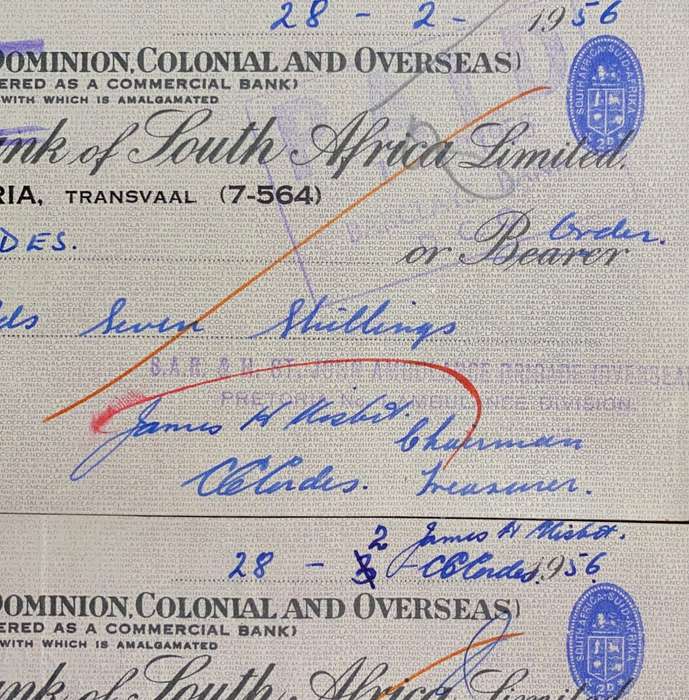 28 - 2 - 1956
DOMINION, COLONIAL AND OVERSEAS)
ERED AS A COMMERCIAL BANK)
WITH WHICH IS AMALGAMATED
SOUTH AFRICA
SUID-AFRIKA
2D
ank of South Africa Limited.
RIA, TRANSVAAL (7-564)
BARCLAYS BANK
DES.
or Bearer
Order.
ds Seven Shillings
S.A.R. & H. ST. JOHN AMBULANCE BRIGADE (OVERSEA
PRETORIA No. AMBULANCE DIVISION
James H Nisbet. Chairman
CCCordes. Treasurer.
James H Nisbet.
28 - 2 - CCCordes. 1956
DOMINION, COLONIAL AND OVERSEAS)
ERED AS A COMMERCIAL BANK)
WITH WHICH IS AMALGAMATED
SOUTH AFRICA
SUID-AFRIKA
2D
ank of South Africa Limited